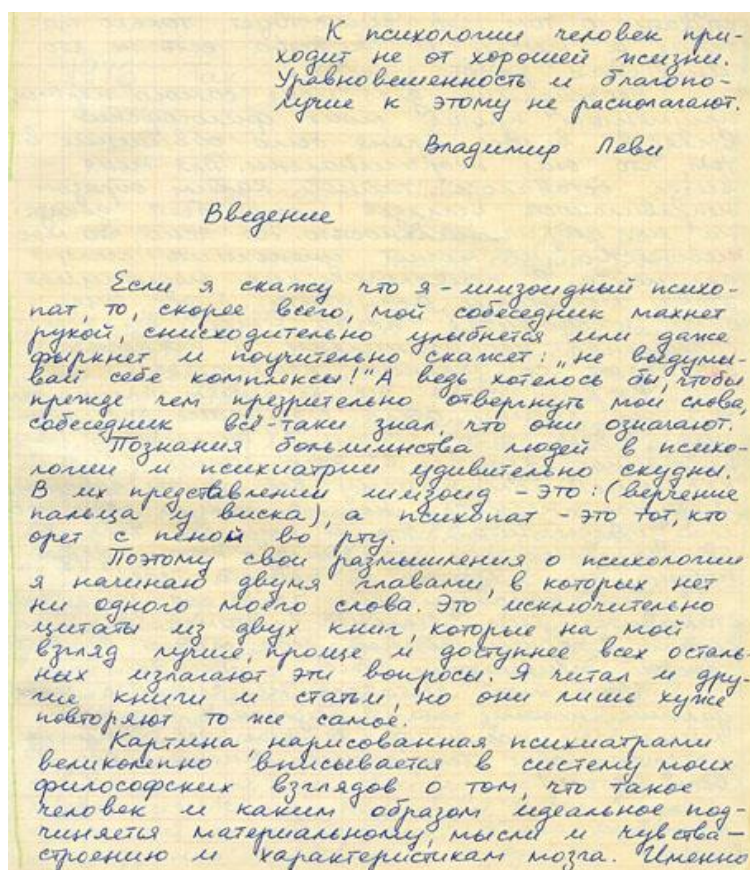 К психологии человек при-
ходит не от хорошей жизни.
Уравновешенность и благопо-
лучие к этому не располагают.
Владимир Леви
Введение
Если я скажу что я - шизоидный психо-
пат, то, скорее всего, мой собеседник махнет
рукой, снисходительно улыбнется или даже
фыркнет и поучительно скажет: „не выдумы-
вай себе комплексы!" А ведь хотелось бы, чтобы
прежде чем презрительно отвергнуть мои слова,
собеседник всё-таки знал, что они означают.
Познания большинства людей в психо-
логии и психиатрии удивительно скудны.
В их представлении шизоид - это: (верчение
пальца у виска), а психопат - это тот, кто
орет с пеной во рту.
Поэтому свои размышления о психологии
я начинаю двумя главами, в которых нет
ни одного моего слова. Это исключительно
цитаты из двух книг, которые на мой
взгляд лучше, проще и доступнее всех осталь-
ных излагают эти вопросы. Я читал и дру-
гие книги и статьи, но они лишь хуже
повторяют то же самое.
Картина, нарисованная психиатрами
великолепно вписывается в систему моих
философских взглядов о том, что такое
человек и каким образом идеальное под-
чиняется материальному, мысли и чувства -
строению и характеристикам мозга. Именно